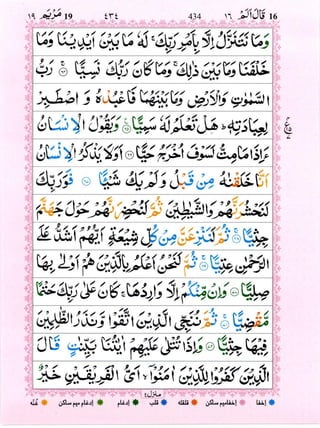 ١٩ مَرْيَم 19 ٤٣٤ 434 ١٦ قَالَ اَلَمْ 16
وَمَا نَتَنَزَّلُ اِلَّا بِاَمْرِ رَبِّكَ ۚ لَهٗ مَا بَيْنَ اَيْدِيْنَا وَمَا
خَلْفَنَا وَمَا بَيْنَ ذٰلِكَ ۚ وَمَا كَانَ رَبُّكَ نَسِيًّا ۚ رَبُّ
السَّمٰوٰتِ وَالْاَرْضِ وَمَا بَيْنَهُمَا فَاعْبُدْهُ وَاصْطَبِرْ
لِعِبَادَتِهٖ ؕ هَلْ تَعْلَمُ لَهٗ سَمِيًّا وَيَقُوْلُ الْاِنْسَانُ
ءَاِذَا مَامِتُّ لَسَوْفَ اُخْرَجُ حَيًّا اَوَلَا يَذْكُرُ الْاِنْسَانُ
اَنَّا خَلَقْنٰهُ مِنْ قَبْلُ وَلَمْ يَكُ شَيْـًٔا فَوَرَبِّكَ
لَنَحْشُرَنَّهُمْ وَالشَّيٰطِيْنَ ثُمَّ لَنُحْضِرَنَّهُمْ حَوْلَ جَهَنَّمَ
جِثِيًّا ۚ ثُمَّ لَنَنْزِعَنَّ مِنْ كُلِّ شِيْعَةٍ اَيُّهُمْ اَشَدُّ عَلَى
الرَّحْمٰنِ عِتِيًّا ۚ ثُمَّ لَنَحْنُ اَعْلَمُ بِالَّذِيْنَ هُمْ اَوْلٰى بِهَا
صِلِيًّا وَاِنْ مِّنْكُمْ اِلَّا وَارِدُهَا ۚ كَانَ عَلٰى رَبِّكَ حَتْمًا
مَّقْضِيًّا ۚ ثُمَّ نُنَجِّى الَّذِيْنَ اتَّقَوْا وَّنَذَرُ الظّٰلِمِيْنَ
فِيْهَا جِثِيًّا وَاِذَا تُتْلٰى عَلَيْهِمْ اٰيٰتُنَا بَيِّنٰتٍ قَالَ
الَّذِيْنَ كَفَرُوْا لِلَّذِيْنَ اٰمَنُوْۤا ۙ اَىُّ الْفَرِيْقَيْنِ خَيْرٌ
منزل ٤
اخفا اخفا میم ساکن قلقله قلب ادغام ادغام میم ساکن غنّه